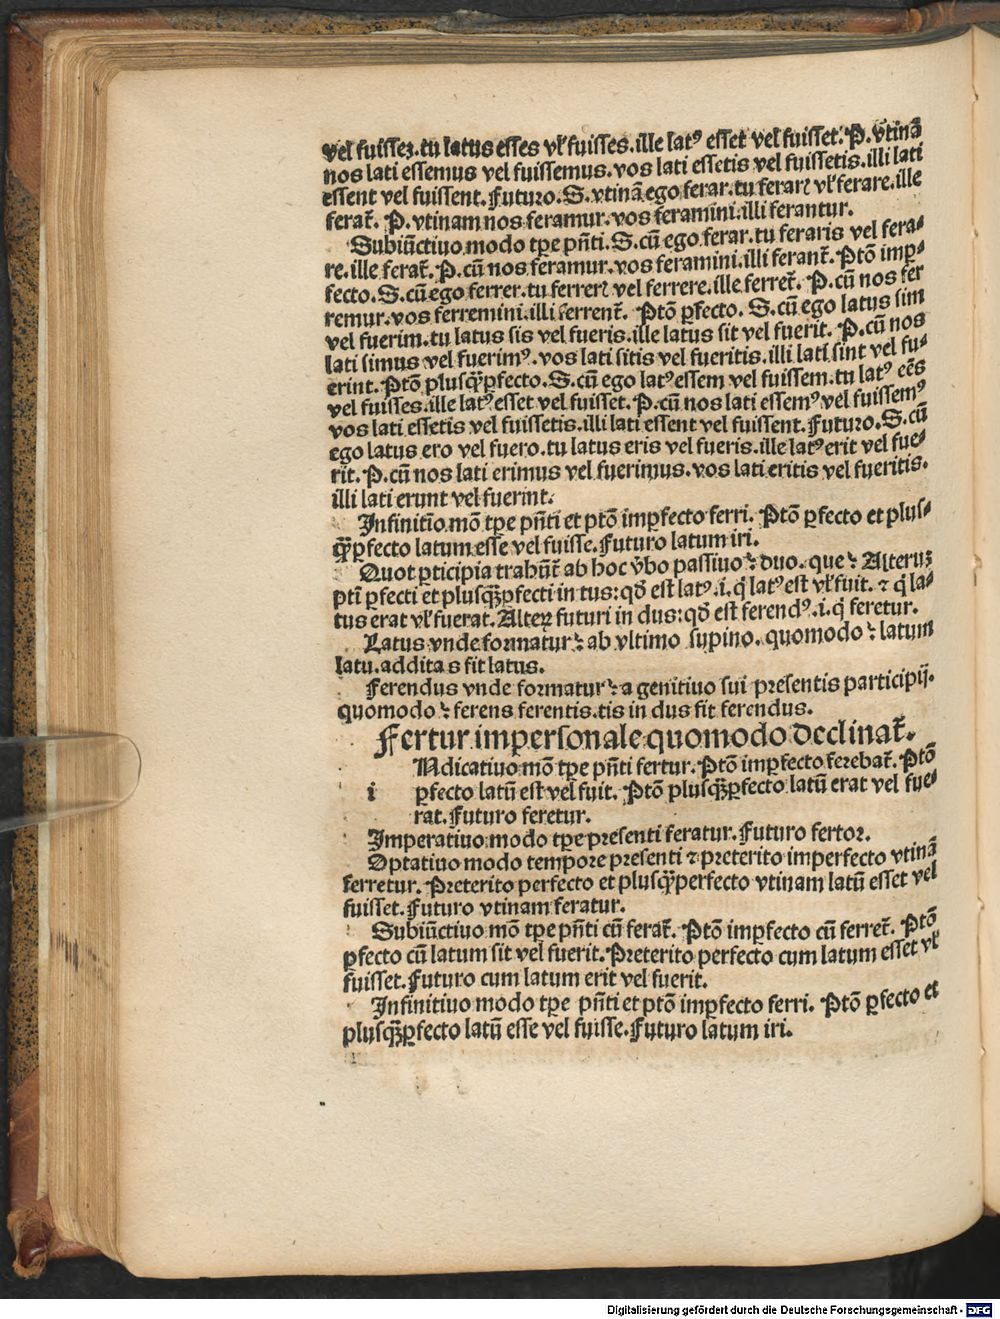 vel fuisseꝫ. tu latus esses vl' fuisses. ille latꝰ esset vel fuisset. P. vtinã
nos lati essemus vel fuissemus. vos lati essetis vel fuissetis. illi lati
essent vel fuissent. Futuro. S. vtinã ego ferar. tu ferarꝭ vl' ferare. ille
feraꝉ. P. vtinam nos feramur. vos feramini. illi ferantur.
Subiũctiuo modo tꝑe pñti. S. cũ ego ferar. tu feraris vel fera⸗
re. ille feraꝉ. P. cũ nos feramur. vos feramini. illi feranꝉ. Ptõ imꝑ⸗
fecto. S. cũ ego ferrer. tu ferrerꝭ vel ferrere. ille ferreꝉ. P. cũ nos fer
remur. vos ferremini. illi ferrenꝉ. Ptõ ꝑfecto. S. cũ ego latus sim
vel fuerim. tu latus sis vel fueris. ille latus sit vel fuerit. P. cũ nos
lati simus vel fuerimꝰ. vos lati sitis vel fueritis. illi lati sint vel fu⸗
erint. Ptõ plusq̃ꝑfecto. S. cũ ego latꝰ essem vel fuissem. tu latꝰ eẽs
vel fuisses. ille latꝰ esset vel fuisset. P. cũ nos lati essemꝰ vel fuissemꝰ
vos lati essetis vel fuissetis. illi lati essent vel fuissent. Futuro. S. cũ
ego latus ero vel fuero. tu latus eris vel fueris. ille latꝰ erit vel fue⸗
rit. P. cũ nos lati erimus vel fuerimus. vos lati eritis vel fueritis.
illi lati erunt vel fuerint.
Infinitio mõ tꝑe pñti et ptõ imꝑfecto ferri. Ptõ ꝑfecto et plus⸗
q̃ꝑfecto latum esse vel fuisse. Futuro latum iri.
Quot ꝑticipia trahũt ab hoc v̓bo passiuo ꝛ duo. que ꝛ Alteruꝫ
ptĩ ꝑfecti et plusq̃ꝑfecti in tus: qđ est latꝰ .i. q̇ latꝰ est vl' fuit. ⁊ q̇ la⸗
tus erat vl' fuerat. Alteꝝ futuri in dus: qđ est ferendꝰ .i. q̇ feretur.
Latus vnde formatur ꝛ ab vltimo supino. quomodo ꝛ latum
latu. addita s fit latus.
Ferendus vnde formatur ꝛ a genitiuo sui presentis participij.
quomodo ꝛ ferens ferentis. tis in dus fit ferendus.
Fertur imꝑsonale quomodo declinaꝉ.
Ndicatiuo mõ tꝑe pñti fertur. Ptõ imꝑfecto ferebaꝉ. Ptõ
i ꝑfecto latũ est vel fuit. Ptõ plusq̃ꝑfecto latũ erat vel fue⸗
rat. Futuro feretur.
Imperatiuo modo tꝑe presenti feratur. Futuro fertor.
Optatiuo modo tempore presenti ⁊ preterito imperfecto vtinã
ferretur. Preterito perfecto et plusq̃perfecto vtinam latũ esset vel
fuisset. Futuro vtinam feratur.
Subiũctiuo mõ tꝑe pñti cũ feraꝉ. Ptõ imꝑfecto cũ ferreꝉ. Ptõ
ꝑfecto cũ latum sit vel fuerit. Preterito perfecto cum latum esset vl'
fuisset. Futuro cum latum erit vel fuerit.
Infinitiuo modo tꝑe pñti et ptõ imꝑfecto ferri. Ptõ ꝑfecto et
plusq̃ꝑfecto latũ esse vel fuisse. Futuro latum iri.
Digitalisierung gefördert durch die Deutsche Forschungsgemeinschaft - DFG